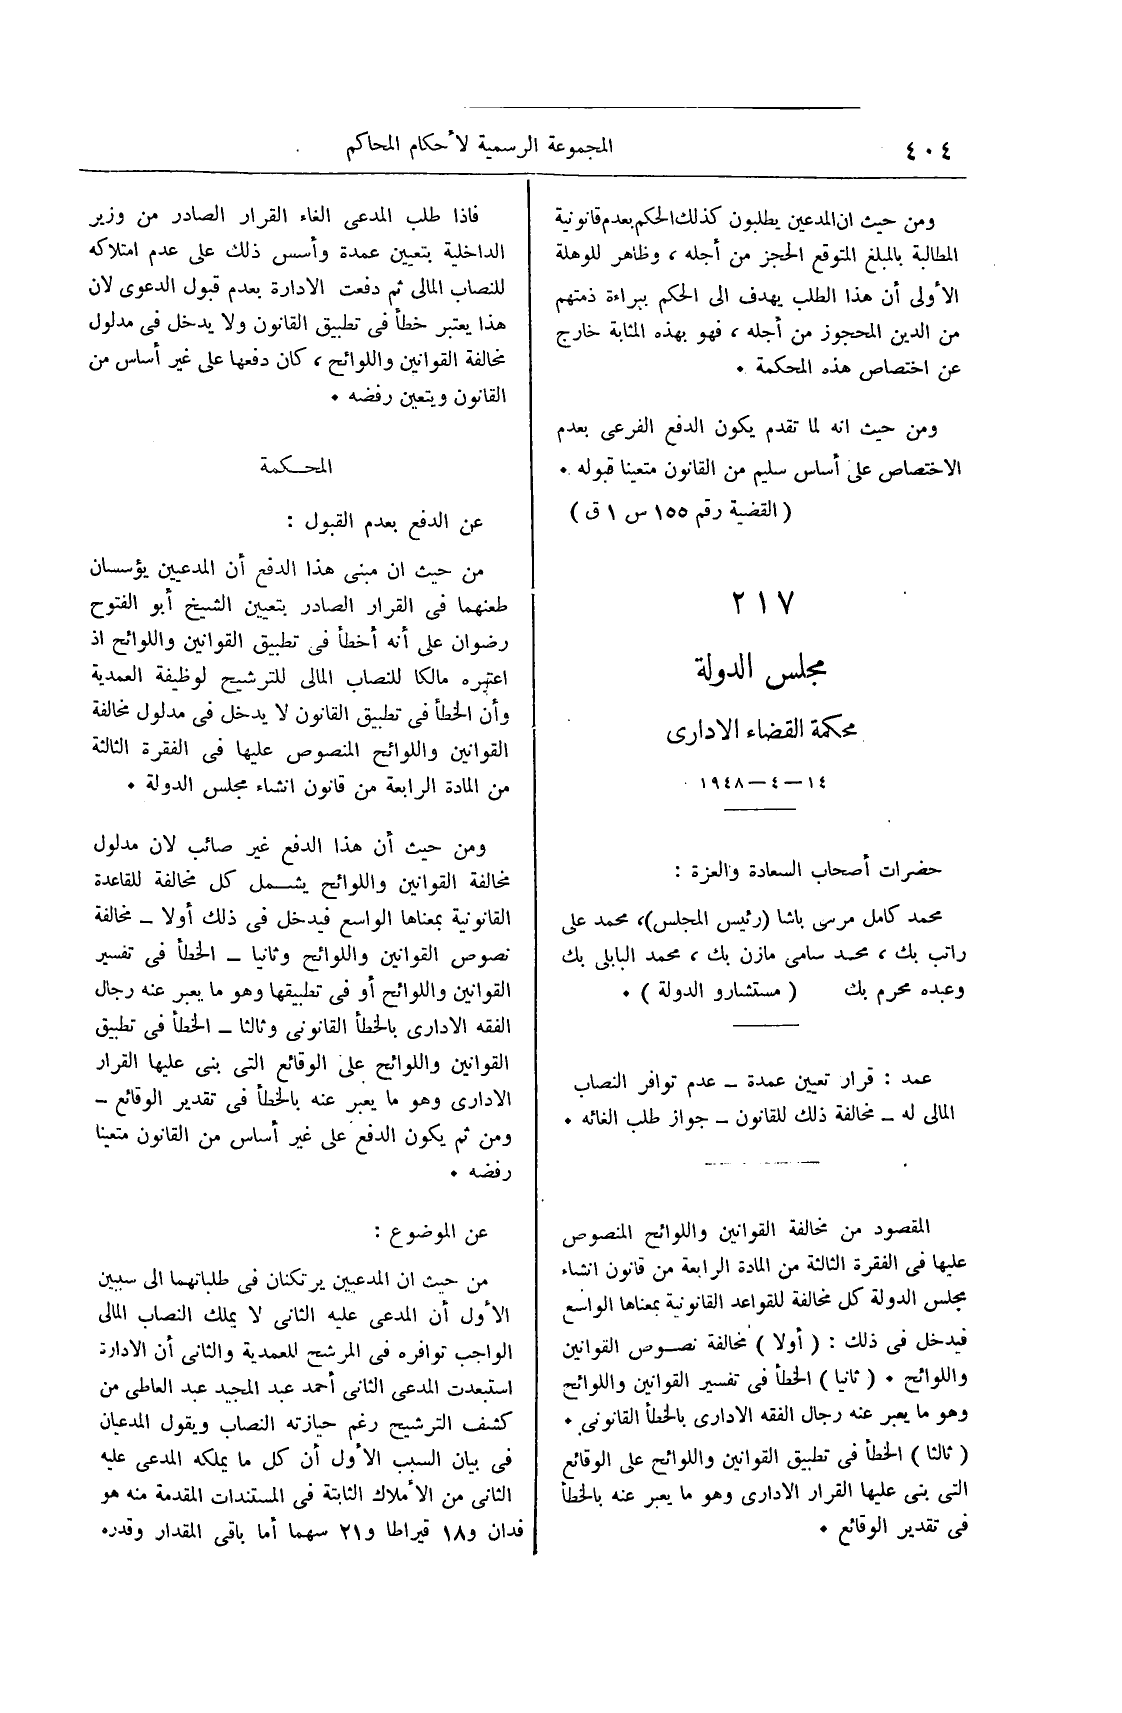 ٤٠٤
المجموعة الرسمية لأحكام المحاكم
ومن حيث ان المدعين يطلبون كذلك الحكم بعدم قانونية
المطالبة بالمبلغ المتوقع الحجز من أجله ، وظاهر للوهلة
الأولى أن هذا الطلب يهدف الى الحكم ببراءة ذمتهم
من الدين المحجوز من أجله ، فهو بهذه المثابة خارج
عن اختصاص هذه المحكمة .
ومن حيث انه لما تقدم يكون الدفع الفرعى بعدم
الاختصاص على أساس سليم من القانون متعينا قبوله .
( القضية رقم ١٥٥ س ١ ق )
٢١٧
مجلس الدولة
محكمة القضاء الادارى
١٤ – ٤ – ١٩٤٨
حضرات أصحاب السعادة والعزة :
محمد كامل مرسى باشا (رئيس المجلس)، محمد على
راتب بك ، محمد سامى مازن بك ، محمد البابلى بك
وعبده محرم بك ( مستشارو الدولة ) .
عمد : قرار تعيين عمدة – عدم توافر النصاب
المالى له – مخالفة ذلك للقانون – جواز طلب الغائه .
المقصود من مخالفة القوانين واللوائح المنصوص
عليها فى الفقرة الثالثة من المادة الرابعة من قانون انشاء
مجلس الدولة كل مخالفة للقواعد القانونية بمعناها الواسع
فيدخل فى ذلك : ( أولا ) مخالفة نصوص القوانين
واللوائح . ( ثانيا ) الخطأ فى تفسير القوانين واللوائح
وهو ما يعبر عنه رجال الفقه الادارى بالخطأ القانونى .
( ثالثا ) الخطأ فى تطبيق القوانين واللوائح على الوقائع
التى بنى عليها القرار الادارى وهو ما يعبر عنه بالخطأ
فى تقدير الوقائع .
فاذا طلب المدعى الغاء القرار الصادر من وزير
الداخلية بتعيين عمدة وأسس ذلك على عدم امتلاكه
للنصاب المالى ثم دفعت الادارة بعدم قبول الدعوى لان
هذا يعتبر خطأ فى تطبيق القانون ولا يدخل فى مدلول
مخالفة القوانين واللوائح ، كان دفعها على غير أساس من
القانون ويتعين رفضه .
المحكمة
عن الدفع بعدم القبول :
من حيث ان مبنى هذا الدفع أن المدعيين يؤسسان
طعنهما فى القرار الصادر بتعيين الشيخ أبو الفتوح
رضوان على أنه أخطأ فى تطبيق القوانين واللوائح اذ
اعتبره مالكا للنصاب المالى للترشيح لوظيفة العمدية
وأن الخطأ فى تطبيق القانون لا يدخل فى مدلول مخالفة
القوانين واللوائح المنصوص عليها فى الفقرة الثالثة
من المادة الرابعة من قانون انشاء مجلس الدولة .
ومن حيث أن هذا الدفع غير صائب لان مدلول
مخالفة القوانين واللوائح يشمل كل مخالفة للقاعدة
القانونية بمعناها الواسع فيدخل فى ذلك أولا – مخالفة
نصوص القوانين واللوائح وثانيا – الخطأ فى تفسير
القوانين واللوائح أو فى تطبيقها وهو ما يعبر عنه رجال
الفقه الادارى بالخطأ القانونى وثالثا – الخطأ فى تطبيق
القوانين واللوائح على الوقائع التى بنى عليها القرار
الادارى وهو ما يعبر عنه بالخطأ فى تقدير الوقائع –
ومن ثم يكون الدفع على غير أساس من القانون متعينا
رفضه .
عن الموضوع :
من حيث ان المدعيين يرتكنان فى طلباتهما الى سببين
الأول أن المدعى عليه الثانى لا يملك النصاب المالى
الواجب توافره فى المرشح للعمدية والثانى أن الادارة
استبعدت المدعى الثانى أحمد عبد المجيد عبد العاطى من
كشف الترشيح رغم حيازته النصاب ويقول المدعيان
فى بيان السبب الأول أن كل ما يملكه المدعى عليه
الثانى من الأملاك الثابتة فى المستندات المقدمة منه هو
فدان و١٨ قيراطا و٢١ سهما أما باقى المقدار وقدره